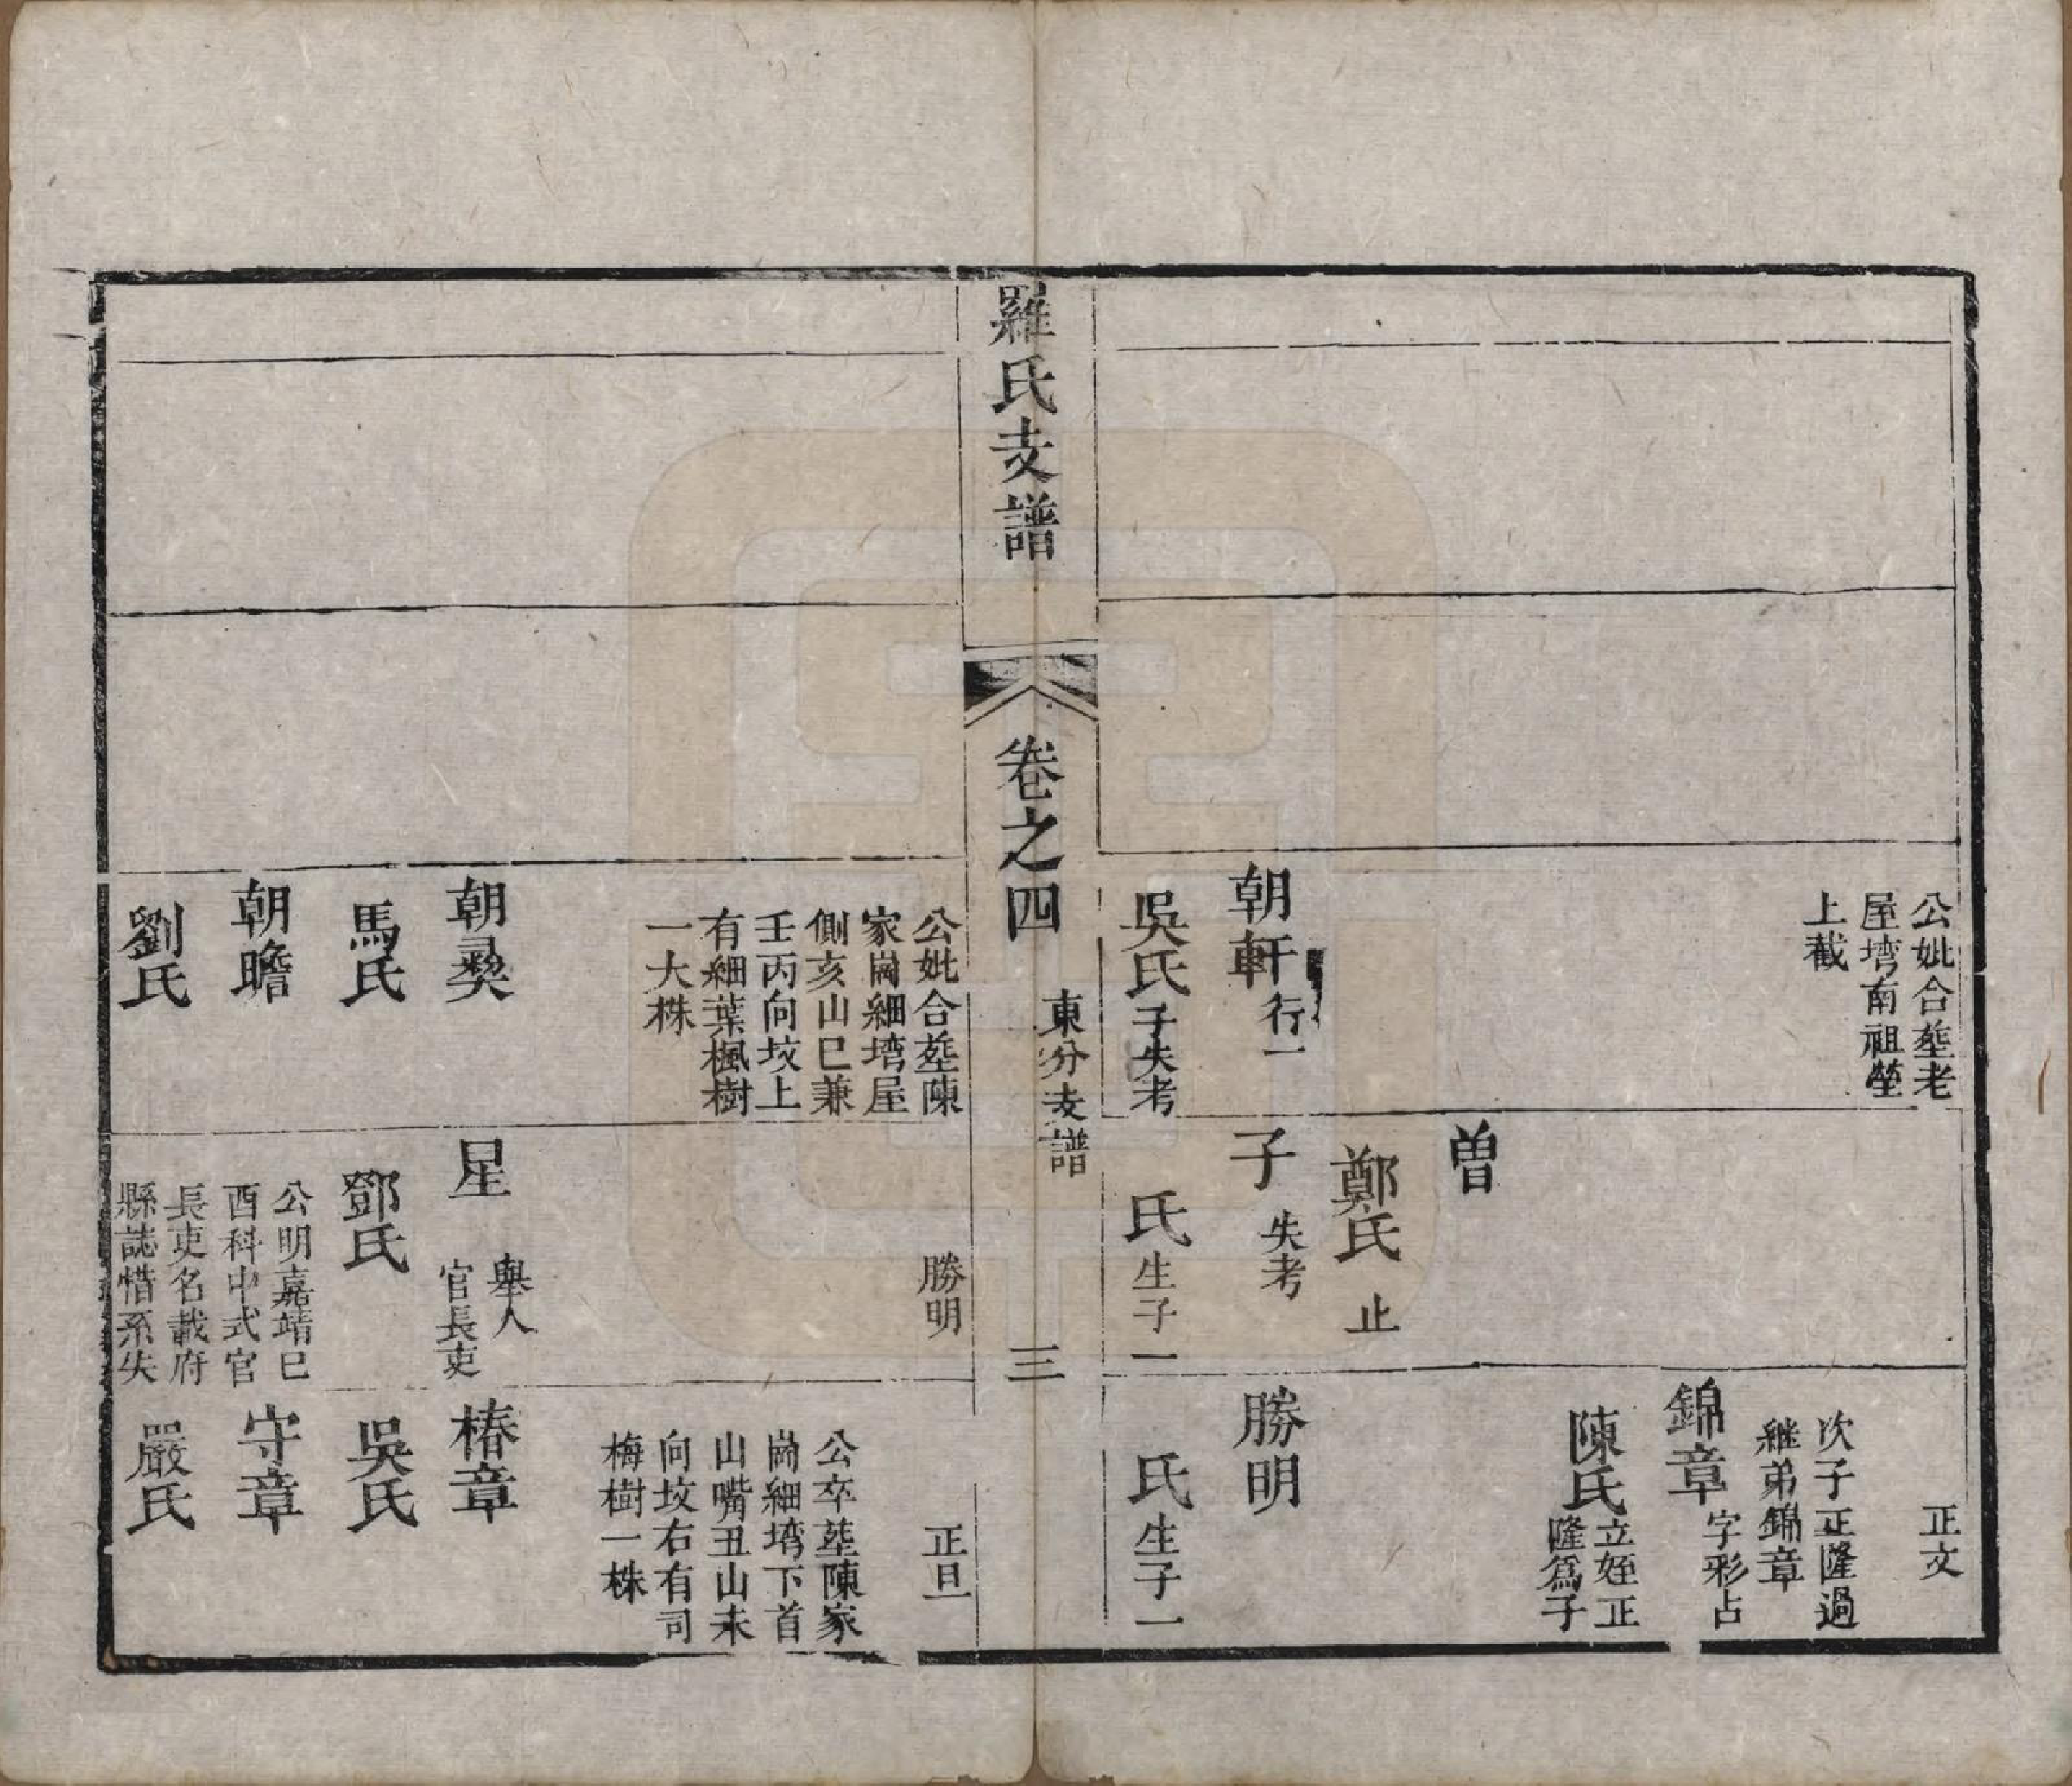 公妣合塟老
屋塆南祖塋
上截
朝軒行一
吳氏子失考
曾
鄭氏 止
子 失考
氏生子一
正文
次子正隆過
継弟錦章
錦章字彩占
陳氏立姪正
隆為子
勝明
氏生子一
羅氏支譜
卷之四
東分支譜
三
公妣合塟陳
家崗細塆屋
側亥山巳兼
壬丙向坟上
有細葉楓樹
一大株
朝彝
馬氏
朝瞻
劉氏
勝明
星 舉人
官長吏
鄧氏
公明嘉靖巳
酉科中式官
長吏名載府
縣誌惜系失
正旦
公卒塟陳家
崗細塆下首
山嘴丑山未
向坟右有司
梅樹一株
椿章
吳氏
守章
嚴氏